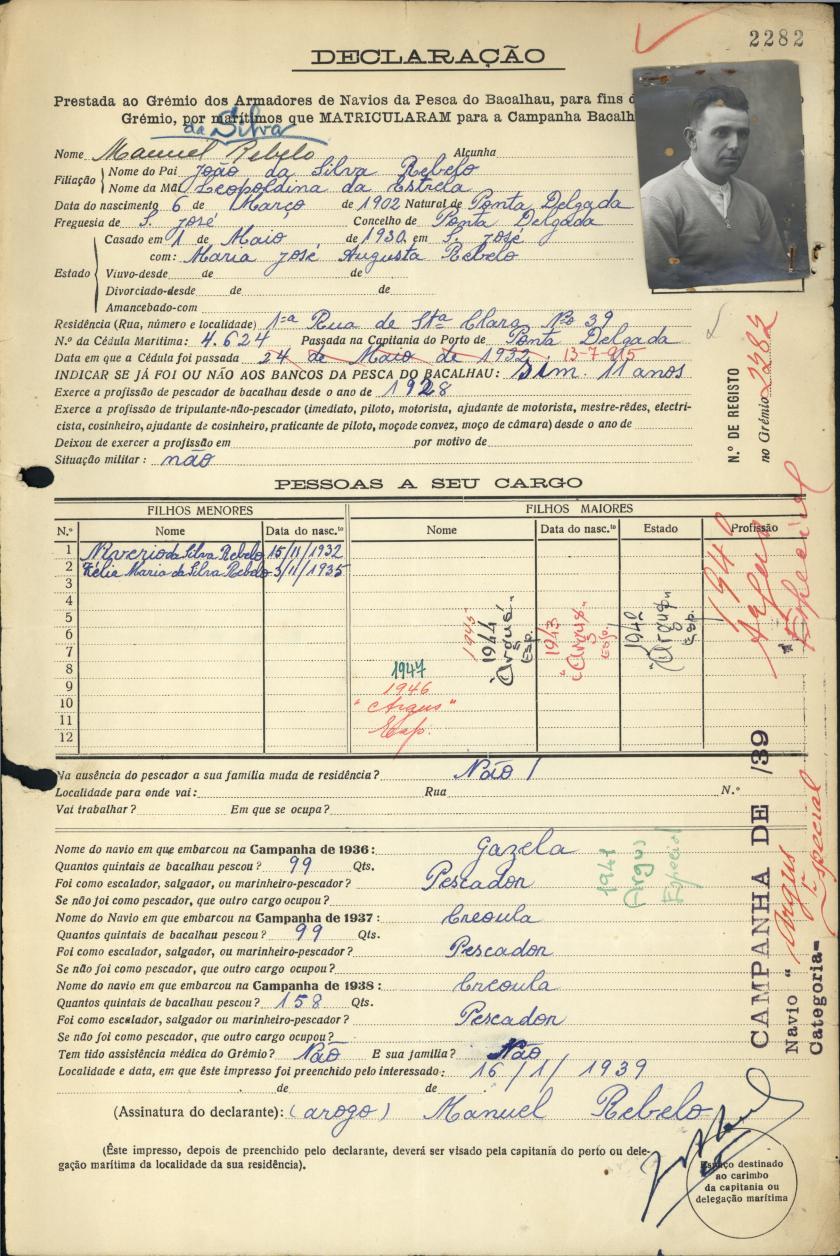 2282
DECLARAÇÃO
Prestada ao Grémio dos Armadores de Navios da Pesca do Bacalhau, para fins d
Grémio, por marítimos que MATRICULARAM para a Campanha Bacalh
da Silva
Nome Manuel Rebelo Alcunha
Filiação Nome do Pai João da Silva Rebelo
Nome da Mãi Leopoldina da Estrela
Data do nascimento 6 de Março de 1902 Natural de Ponta Delgada
Freguesia de S. José Concelho de Ponta Delgada
Casado em 1 de Maio de 1930 em S. José
com: Maria José Augusta Rebelo
Estado Viuvo-desde de de
Divorciado-desde de de
Amancebado-com
Residência (Rua, número e localidade) 1ª Rua de Stª Clara Nº 39
N.º da Cédula Marítima: 4.624 Passada na Capitania do Porto de Ponta Delgada
Data em que a Cédula foi passada 24 de Maio de 1932. 13-7-915
INDICAR SE JÁ FOI OU NÃO AOS BANCOS DA PESCA DO BACALHAU: Sim. 11 anos
Exerce a profissão de pescador de bacalhau desde o ano de 1928
Exerce a profissão de tripulante-não-pescador (imediato, piloto, motorista, ajudante de motorista, mestre-rêdes, electri-
cista, cosinheiro, ajudante de cosinheiro, praticante de piloto, moço de convez, moço de câmara) desde o ano de
Deixou de exercer a profissão em por motivo de
Situação militar: não
N.º DE REGISTO
no Grémio 2282
PESSOAS A SEU CARGO
FILHOS MENORES FILHOS MAIORES
N.º Nome Data do nasc.to Nome Data do nasc.to Estado Profissão
1 da Silva Rebelo 15/11/1932
2 Maria da Silva Rebelo 3/11/1935
3
4
5
6
7
8
9
10
11
12
1945
1944 "Argus" Esp.
1943 "Argus" Esp.
1942 "Argus" Esp.
1940 Argus Especial
1947
1946
"Argus"
Esp.
Na ausência do pescador a sua família muda de residência? Não
Localidade para onde vai: Rua N.º
Vai trabalhar? Em que se ocupa?
Nome do navio em que embarcou na Campanha de 1936: Gazela
Quantos quintais de bacalhau pescou? 99 Qts.
Foi como escalador, salgador, ou marinheiro-pescador? Pescador
Se não foi como pescador, que outro cargo ocupou?
Nome do Navio em que embarcou na Campanha de 1937: Creoula
Quantos quintais de bacalhau pescou? 99 Qts.
Foi como escalador, salgador, ou marinheiro-pescador? Pescador
Se não foi como pescador, que outro cargo ocupou?
Nome do navio em que embarcou na Campanha de 1938: Creoula
Quantos quintais de bacalhau pescou? 158 Qts.
Foi como escalador, salgador ou marinheiro-pescador? Pescador
Se não foi como pescador, que outro cargo ocupou?
Tem tido assistência médica do Grémio? Não E sua família? Não
Localidade e data, em que êste impresso foi preenchido pelo interessado: 16/1/1939
de de
1941
Argus
Especial
CAMPANHA DE /39
Navio "Argus
Categoria- Especial
(Assinatura do declarante): (arogo) Manuel Rebelo
(Êste impresso, depois de preenchido pelo declarante, deverá ser visado pela capitania do porto ou dele-
gação marítima da localidade da sua residência).
Espaço destinado
ao carimbo
da capitania ou
delegação marítima